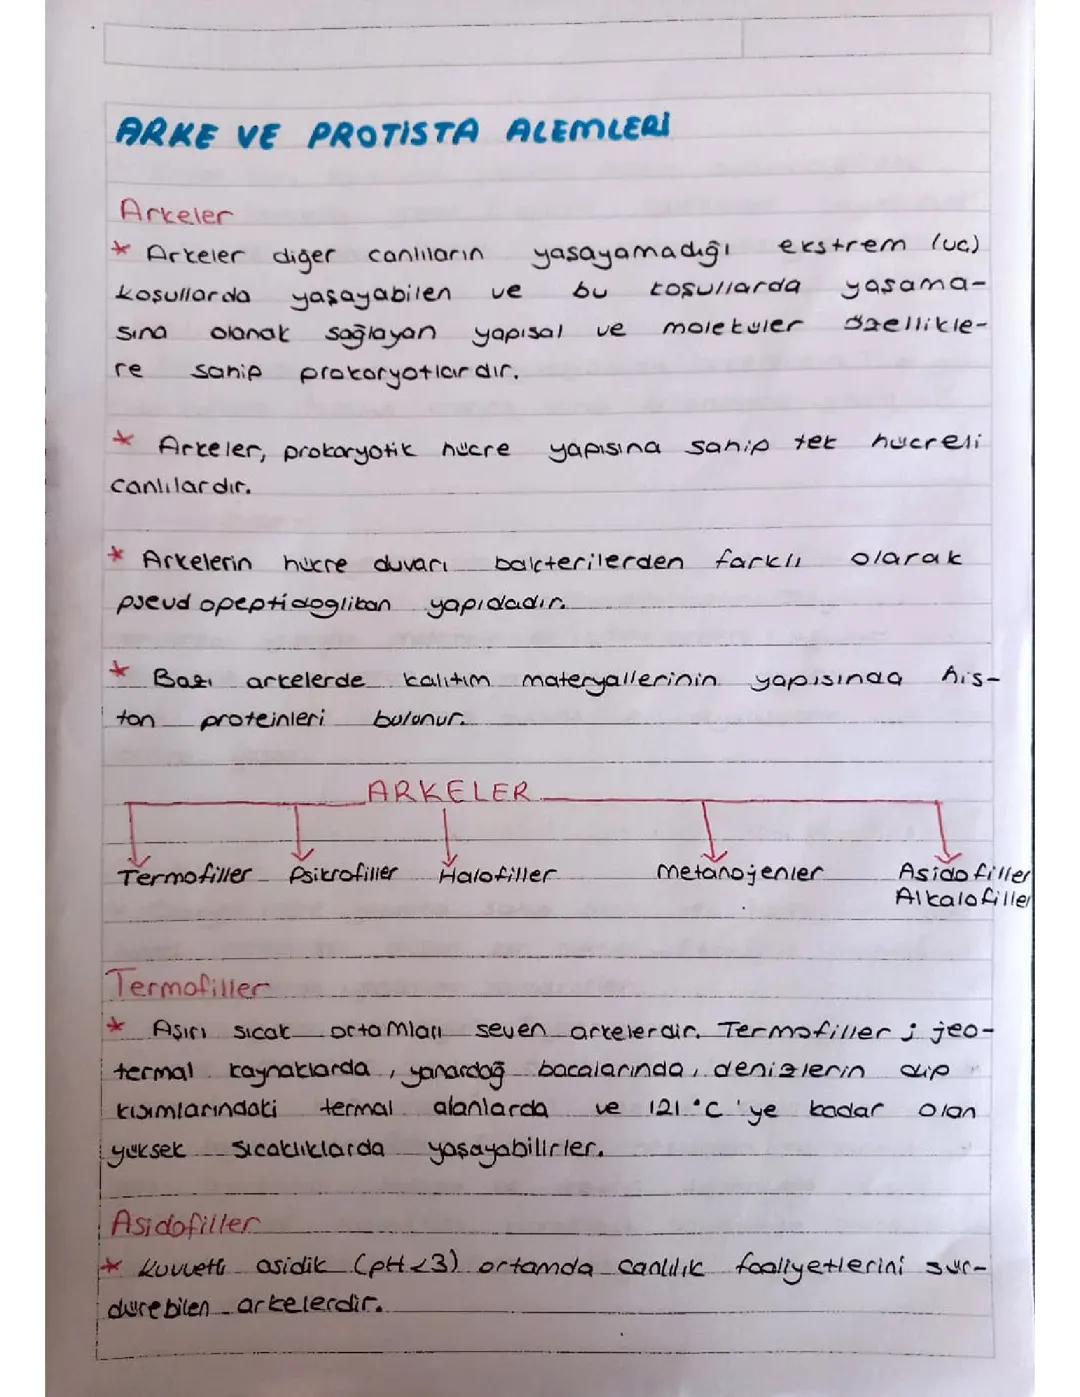 ARKE VE PROTİSTA ALEMLERİ
Arkeler
* Arkeler diğer canlıların yaşayamadığı ekstrem (uc)
koşullarda yaşayabilen ve bu koşullarda yaşama-
sına olanak sağlayan yapısal ve moleküler özellikle-
re sahip prokaryotlardır.
* Arkeler, prokaryotik hücre yapısına sahip tek hücreli
canlılardır.
* Arkelerin hücre duvarı bakterilerden farklı olarak
pseudopeptidoglikan yapıdadır.
* Bazı arkelerde kalıtım materyallerinin yapısında his-
ton proteinleri bulunur.
ARKELER
Termofiller Psikrofiller Halofiller Metanojenler Asidofiller
Alkalofiller
Termofiller
* Aşırı sıcak ortamları seven arkelerdir. Termofiller ; jeo-
termal kaynaklarda, yanardağ bacalarında, denizlerin dip
kısımlarındaki termal alanlarda ve 121 °C 'ye kadar olan
yüksek sıcaklıklarda yaşayabilirler.
Asidofiller
* Kuvvetli asidik (pH<3) ortamda canlılık faaliyetlerini sür-
dürebilen arkelerdir.